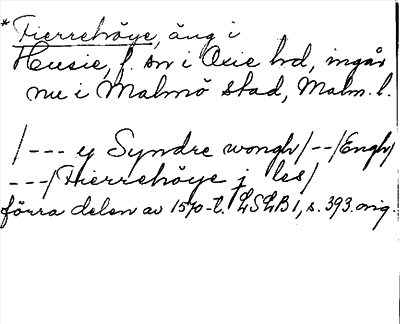 *Fierrehöye, äng i
Husie, f. sn i Oxie hd, ingår
nu i Malmö stad, Malm. l.
/--- ej Syndre wongh/--/Engh/
---/Fierrehöye j les/
förra delen av 1570-t. LSLB 1, s. 393. orig.